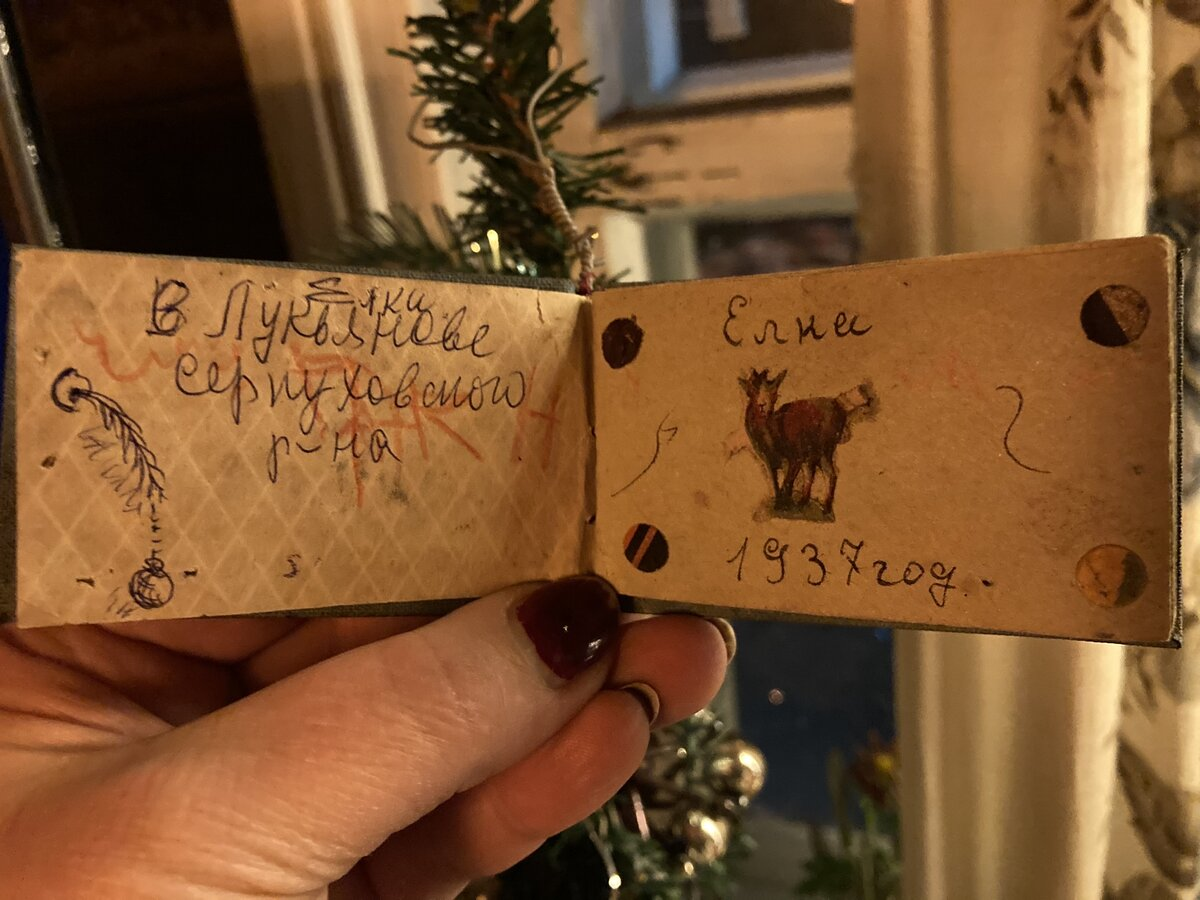 Елки
В Лукьянове
Серпуховского
р-на
Елки
1937 год.